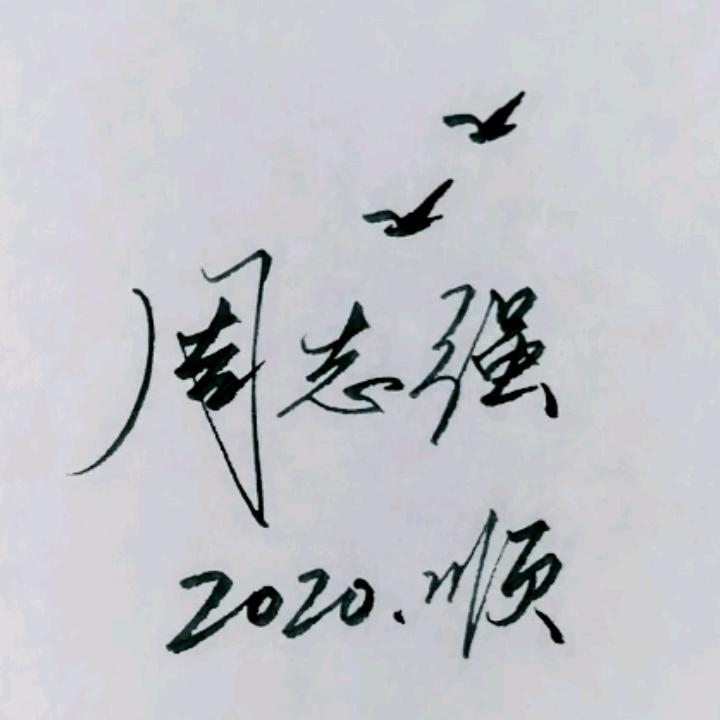 周志强
2020.顺